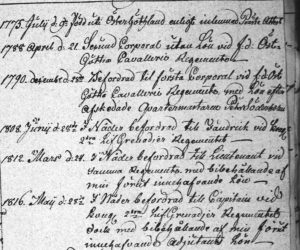 1775. Julij d. 9. född uti Östergöthland enligt inlemnad Präste Attest
1788 April d. 21. Secund Corporal utan lön vid f.d. Öst-
Göttha Cavallerie Regementet
1790. december d. 28 Befordrad til förste Corporal vid f.d. Öst
Götta Cavallerie Regemente, med lön efter
afskedade Quartermästaren
1808. Junij d. 28 I Nåder befordrad til Fändrick vid
Lif Grenadier Regementet
1812. Mars d. 24. I Nåder befordrad til Lieutenant vid
samma Regemente med bibehållande af
min förut innehafvande lön
1816. Maij d. 28 I Nåder befordrad til Capitain vid
Kong. 2dra Lif Grenadier Regementet
dock med bibehållande af min förut
innehafvande adjutants lön